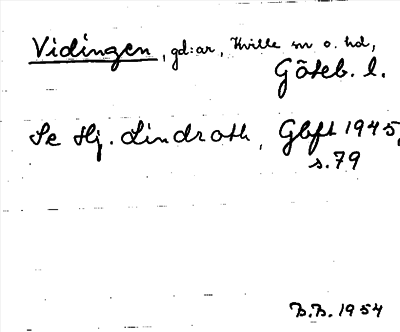 Vidingen, gd:ar, Kville sn o. hd,
Göteb. l.
Se Hj. Lindroth, Gbft 1945,
s. 79
B.B. 1954